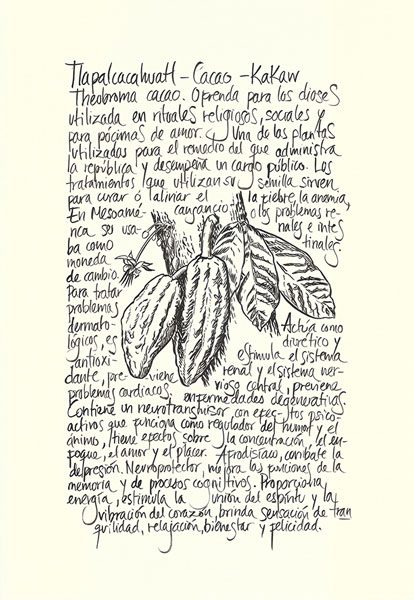 Tlapalcacahuatl – Cacao – Kakaw
Theobroma cacao. Ofrenda para los dioses
utilizada en rituales religiosos, sociales y
para pócimas de amor. Una de las plantas
utilizadas para el remedio del que administra
la república y desempeña un cargo público. Los
tratamientos que utilizan su semilla sirven
para curar ó aliviar el la fiebre, la anemia,
En Mesoamé cansancio, o los problemas re-
rica se usa- nales e intes
ba como tinales.
moneda
de cambio.
Para tratar
problemas
dermato- Actúa como
lógicos, es diurético y
antioxi- estimula el sistema
dante, pre- viene renal y el sistema ner-
problemas cardiacos. vioso central, previene
enfermedades degenerativas.
Contiene un neurotransmisor con efectos psico-
activos que funciona como regulador del humor y el
ánimo, tiene efectos sobre la concentración, el en-
foque, el amor y el placer. Afrodisíaco, combate la
depresión. Neuroprotector, mejora las funciones de la
memoria y de procesos cognitivos. Proporciona
energía, estimula la unión del espíritu y la
vibración del corazón, brinda sensación de tran
quilidad, relajación, bienestar y felicidad.